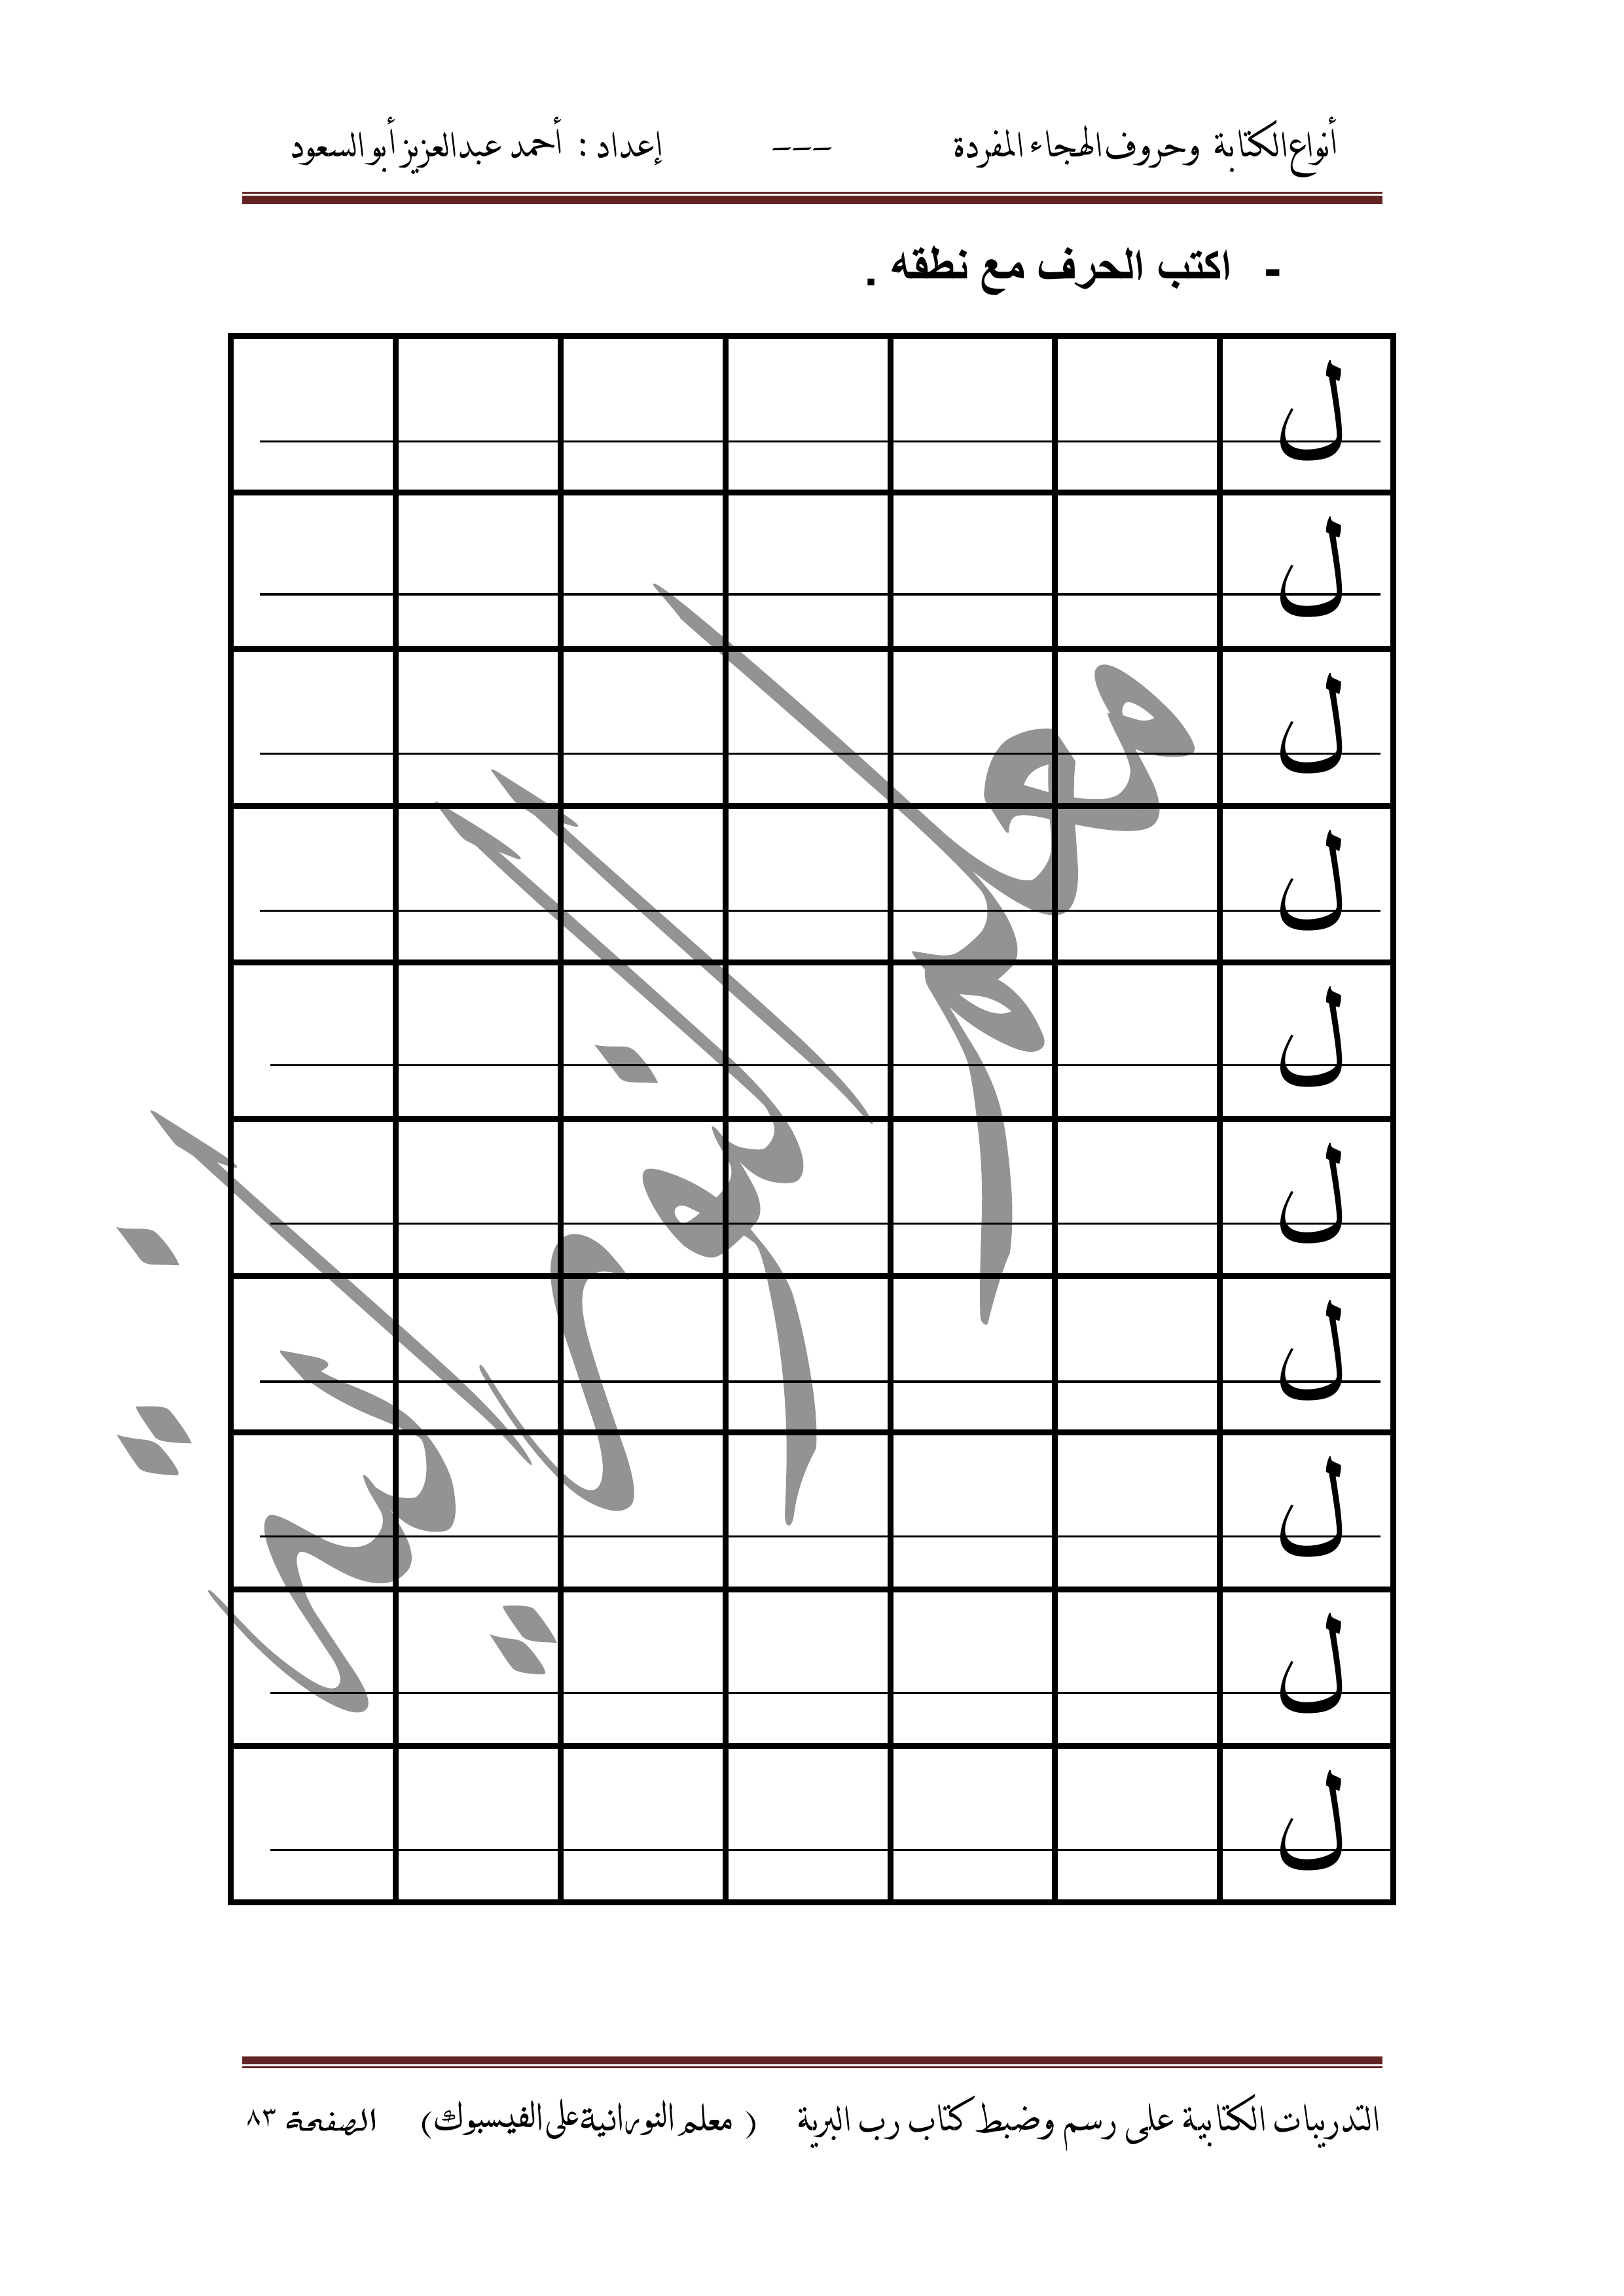 أنواع الكتابة وحروف الهجاء المفردة --- إعداد : أحمد عبد العزيز أبو السعود
- اكتب الحرف مع نطقه .
ل
ل
ل
ل
ل
ل
ل
ل
ل
ل
معلم النورانية
التدريبات الكتابية على رسم وضبط كتاب رب البرية ( معلم النورانية على الفيسبوك ) الصفحة ٨٣